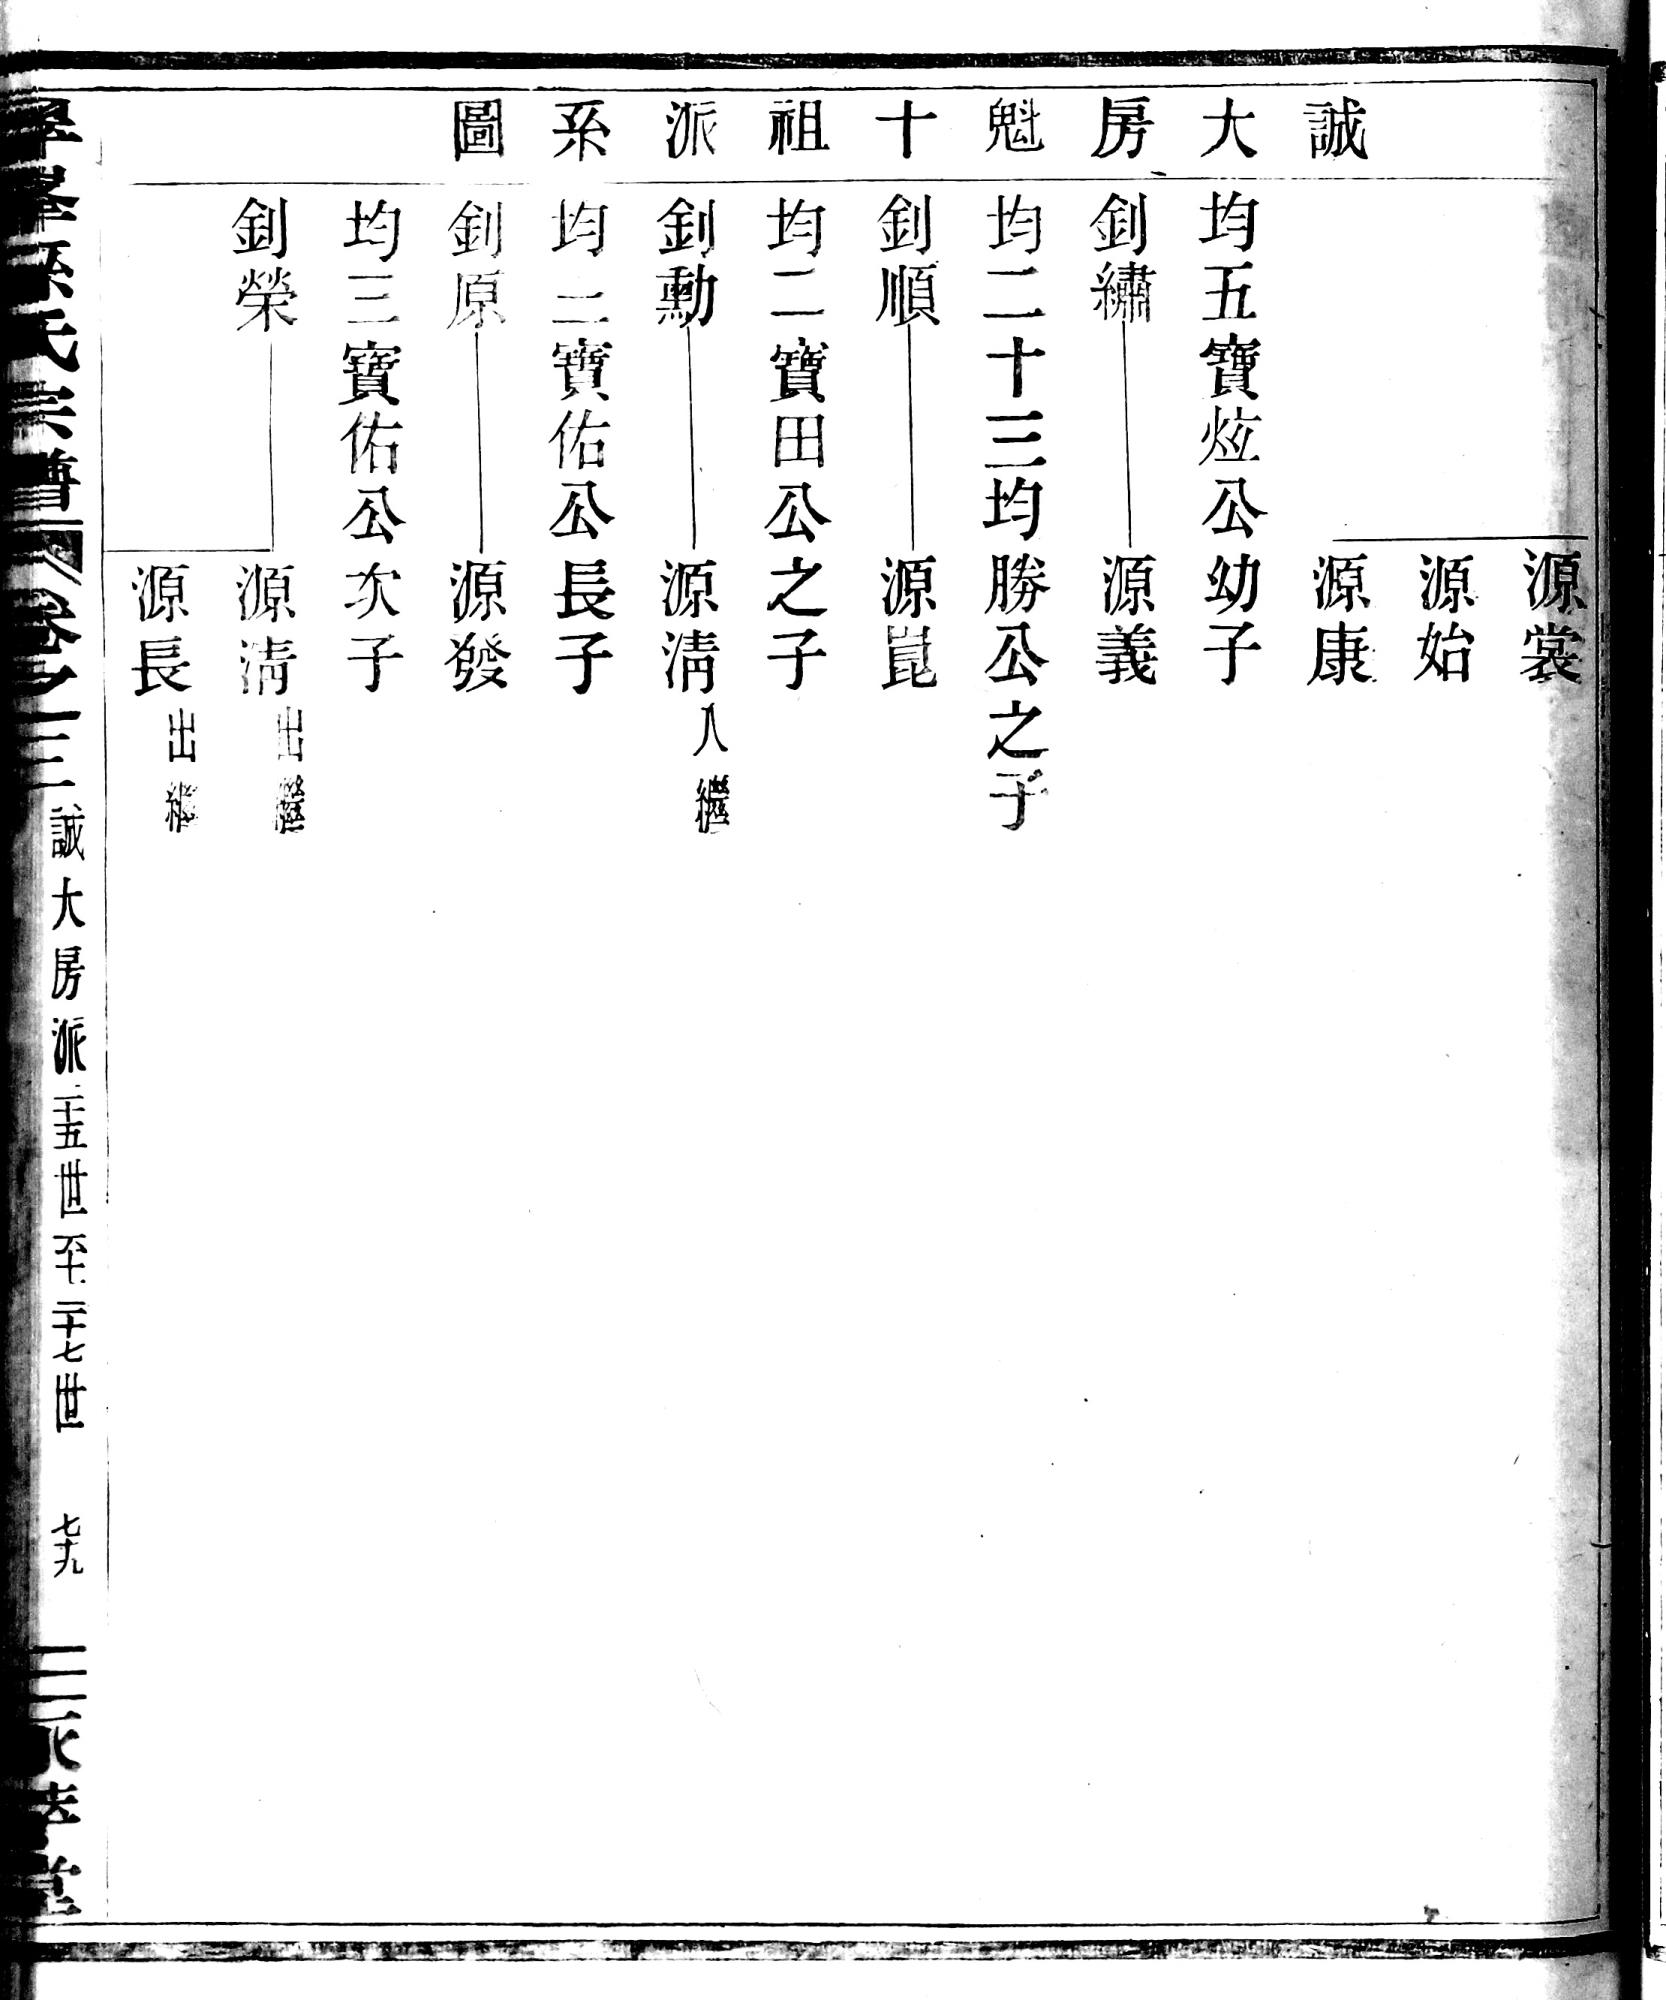 誠大房魁十祖派系圖
源裳
源始
源康
均五寶炫公幼子
釗繡 源義
均二十三均勝公之子
釗順 源崑
均二寶田公之子
釗勳 源淸入繼
均二寶佑公長子
釗原 源發
均三寶佑公次子
釗榮 源淸出繼
源長出繼
孫氏宗譜 卷之十三 誠大房派二十五世至二十七世 七十九 堂